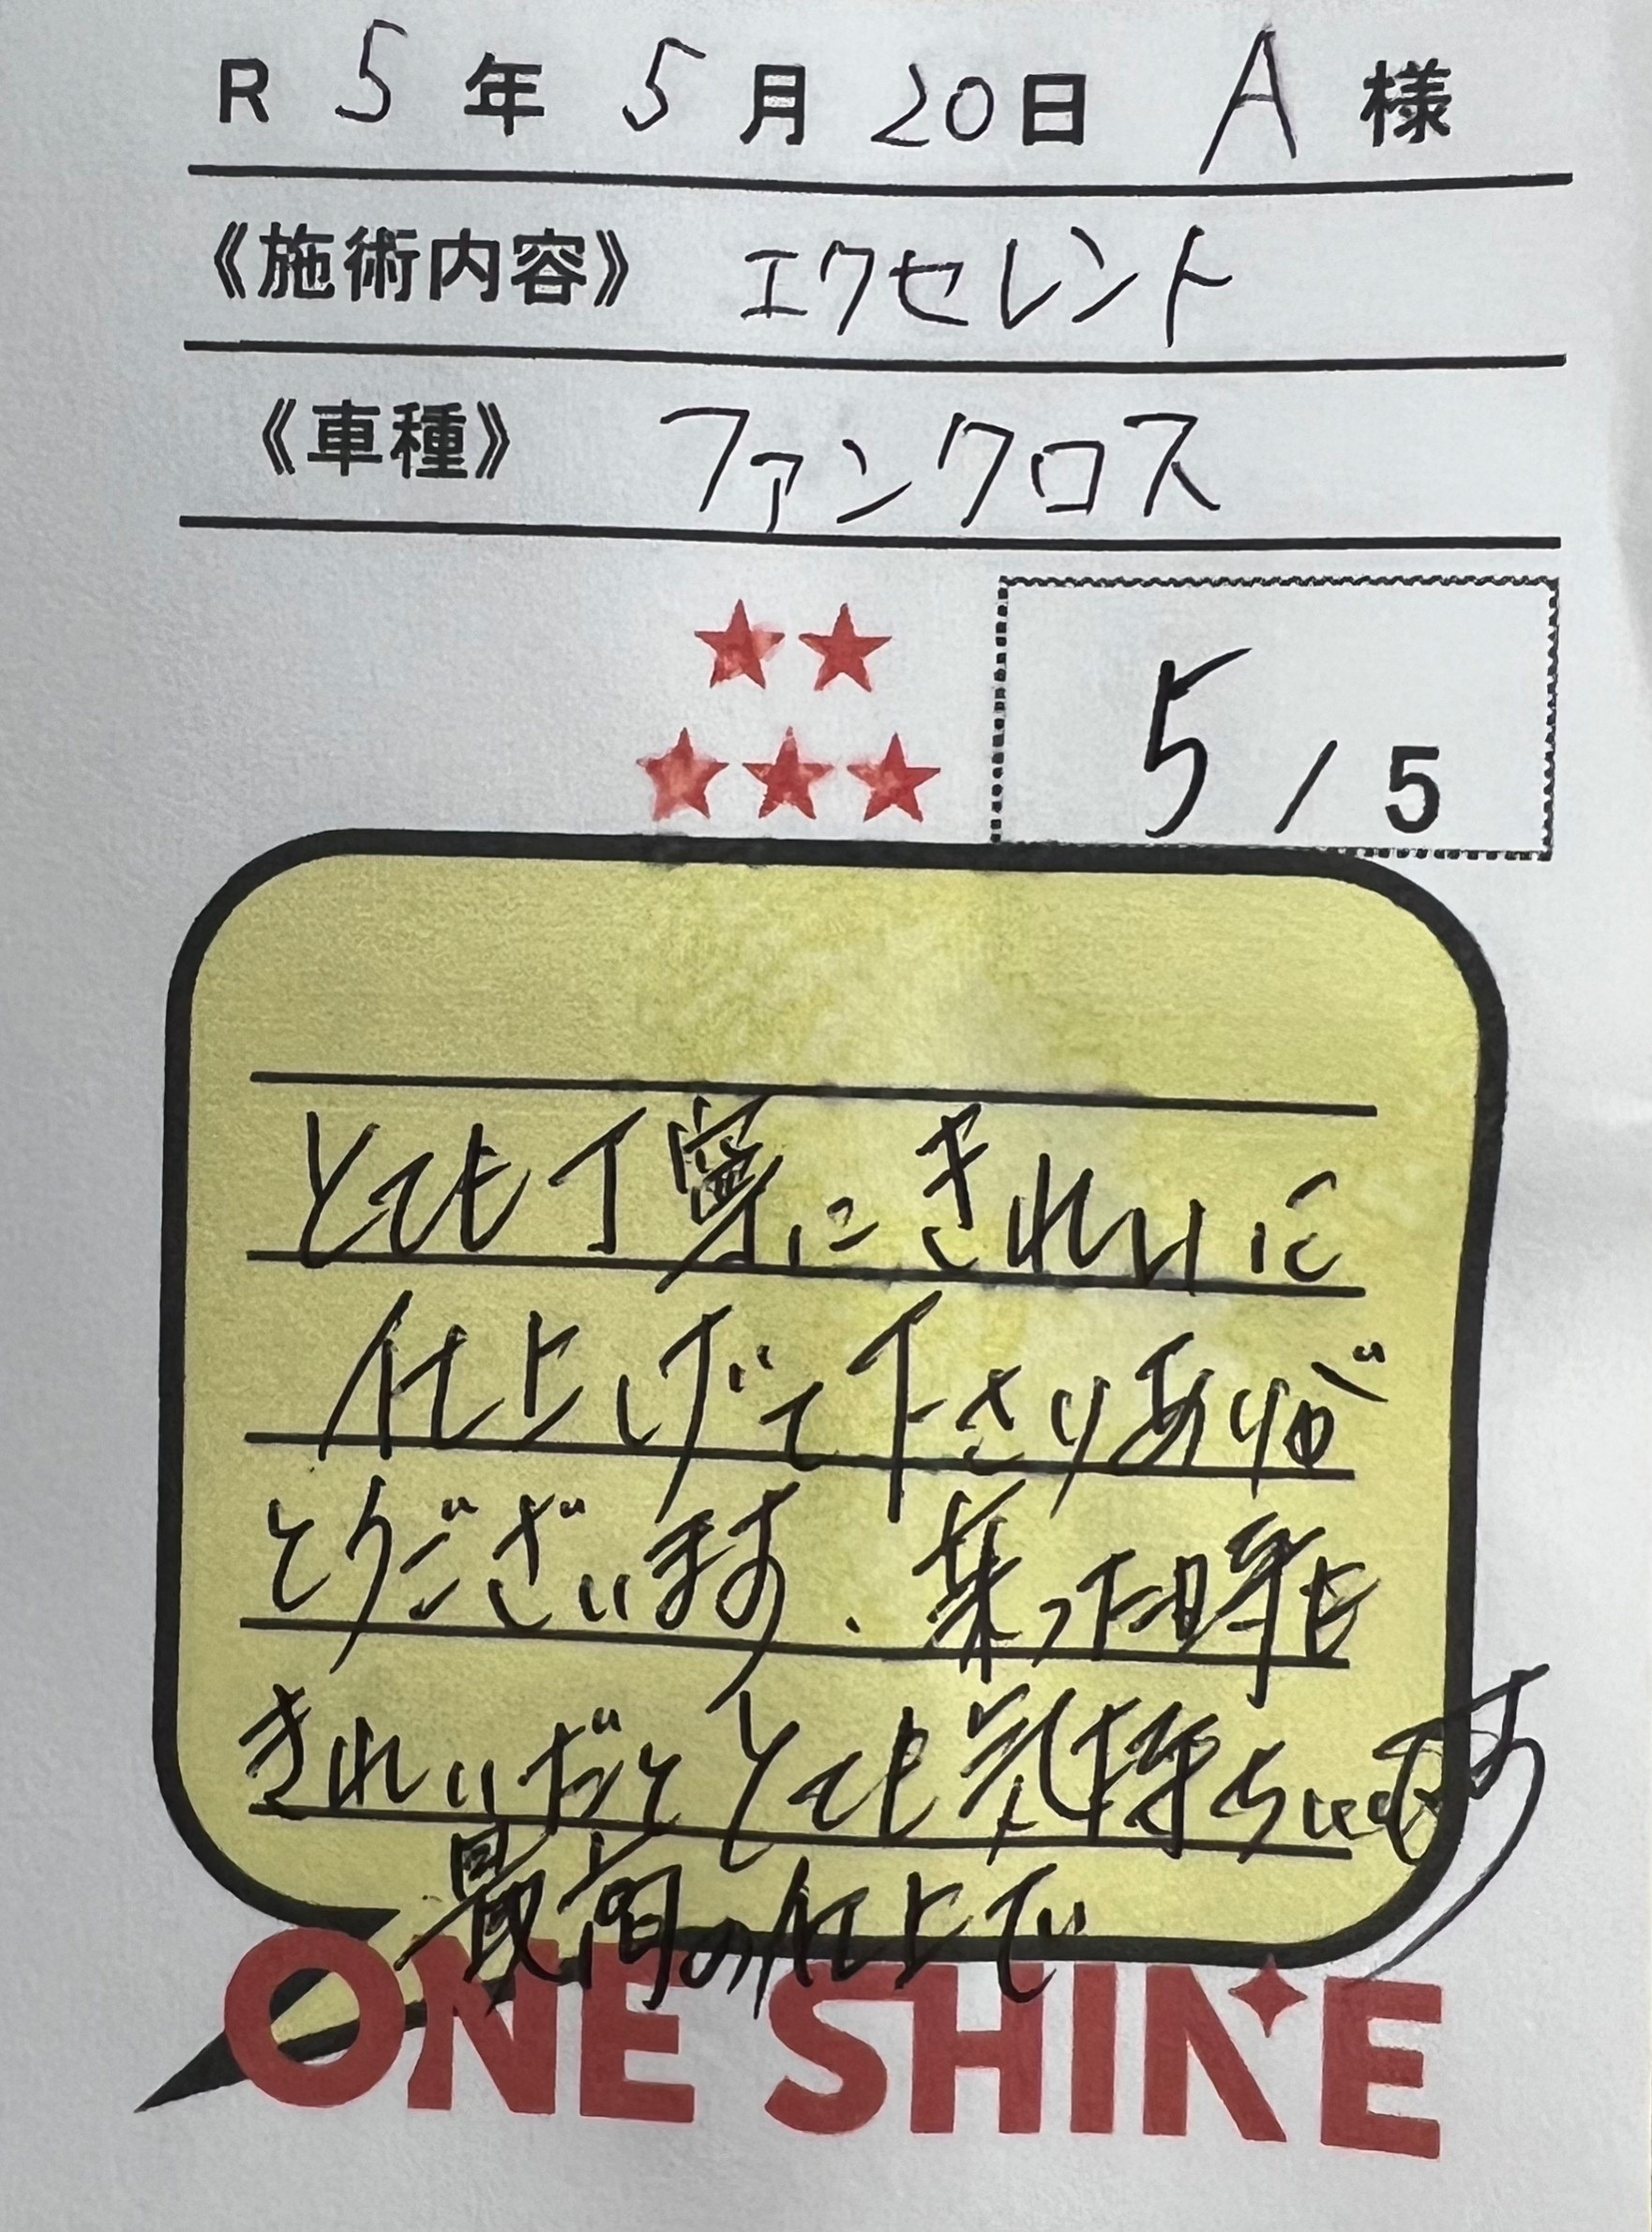 R 5年 5月 20日 A 様
《施術内容》 エクセレント
《車種》 ファンクロス
5 / 5
とても丁寧にきれいに
仕上げて下さりありが
とうございます、乗った時も
きれいだととても気持ちいいです
最高の仕上でい
ONE SHINE